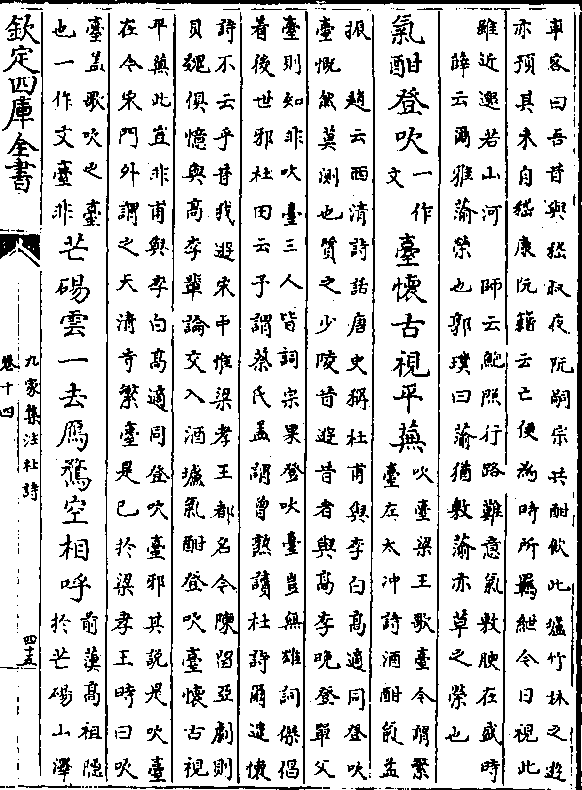 車客曰吾昔與嵇叔夜阮嗣宗共酣飲此壚竹林之遊
亦預其末自嵇康阮籍云亡便為時所羈紲今日視此
雖近邈若山河 師云鮑照行路難意氣敷腴在盛時
薛云爾雅蕍榮也郭璞曰蕍猶敷蕍亦草之榮也
氣酣登吹
一作
文
臺懷古視平蕪
吹臺梁王歌臺今謂繁
臺左太冲詩酒酣氣益
振 趙云西清詩話唐史稱杜甫與李白高適同登吹
臺慨然莫測也質之少陵昔遊昔者與高李晚登單父
臺則知非吹臺三人皆詞宗果登吹臺豈無雄詞傑倡
着後世邪杜田云予謂蔡氏盖謂曾熟讀杜詩爾遣懷
詩不云乎昔我遊宋中惟梁孝王都名今陳留亞劇則
貝魏俱憶與高李輩論交入酒壚氣酣登吹臺懷古視
平蕪此豈非甫與李白高適同登吹臺邪其說是吹臺
在今宋門外謂之天清寺繁臺是已於梁孝王時曰吹
臺盖歌吹之臺
也一作文臺非
芒碭雲一去鴈鶩空相呼
前漢高祖隱
於芒碭山澤
欽定四庫全書
九家集注杜詩
卷十四